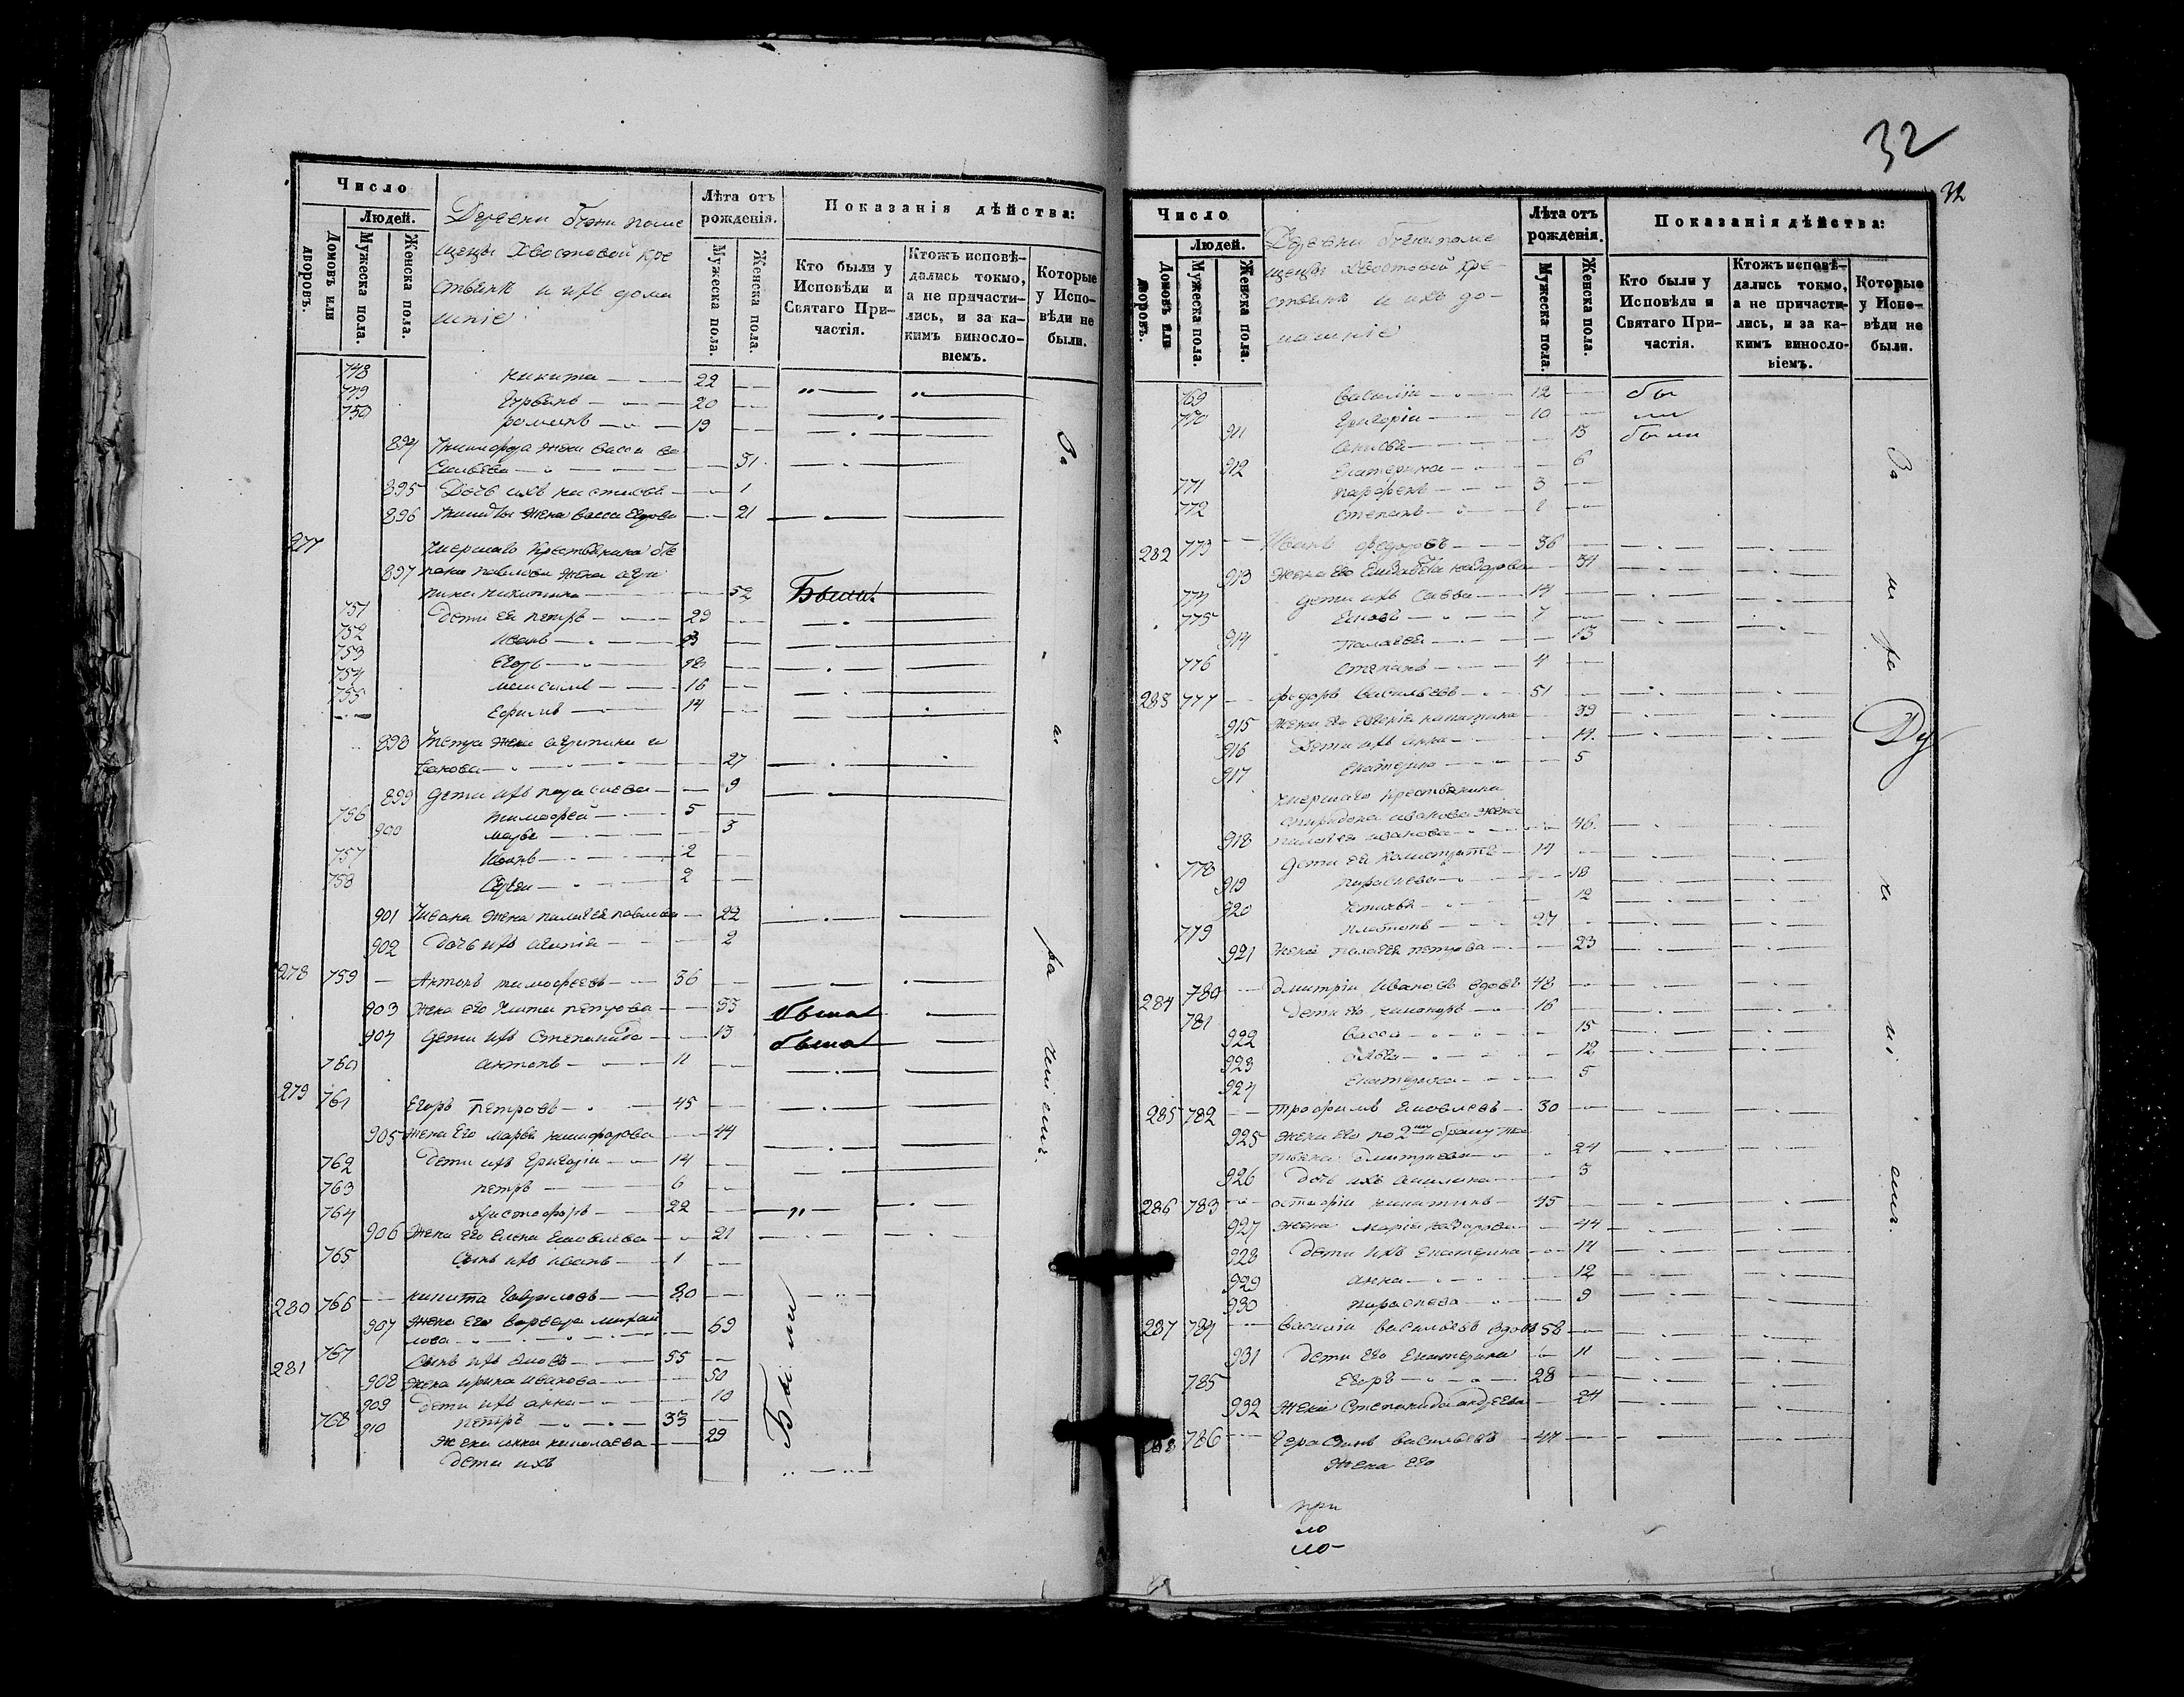 Число
Людей.
Домовъ или дворовъ.
Мужеска пола.
Женска пола.
Деревни поме
щицы Хвостовой кре
стьянъ и ихъ дома
шніе
Лѣта отъ рожденія.
Мужеска пола.
Женска пола.
Показанія дѣйства:
Кто были у Исповѣди и Святаго Причастія.
Ктожъ исповѣдались токмо, а не причастились, и за какимъ винословіемъ.
Которые у Исповѣди не были.
748 Никита 22
749 20
750 романъ 19
894 жена васса ва
сильева 31
895 Дочь ихъ настасья 1
896 жена васса 21
277 умершаго крестьянина
897 павлова жена агри
пина никитина 52 Были
751 Дети ея петръ 29
752 Иванъ 23
753 Егоръ 18
754 максимъ 16
755 Ефимъ 14
898 Петра жена агрипина и
ванова 27
899 Дети ихъ параскева 9
756 тимофей 5
900 марья 3
757 Иванъ 2
758 Сергей 2
901 Ивана жена пелагея павлова 22
902 Дочь ихъ 2
278 759 Антонъ тимофеевъ 36
903 жена его петрова 33 была
904 Дети ихъ Степанида 13 была
760 антонъ 11
279 761 Егоръ Петровъ 45
905 жена Его марья никифорова 44
762 Дети ихъ Григорій 14
763 петръ 6
764 христофоръ 22
906 жена его Елена Яковлева 21
765 Сынъ ихъ иванъ 1
280 766 никита Гавриловъ 80
907 жена его варвара михай
лова 69
281 767 Сынъ ихъ яковъ 55
908 жена ирина иванова 50
909 дети ихъ анна 10
768 910 петръ 33
жена анна николаева 29
дети ихъ
Были
32
32
Число
Людей.
Домовъ или дворовъ.
Мужеска пола.
Женска пола.
Деревни поме
щицы Хвостовой кре-
стьянъ и ихъ до-
машніе
Лѣта отъ рожденія.
Мужеска пола.
Женска пола.
Показанія дѣйства:
Кто были у Исповѣди и Святаго Причастія.
Ктожъ исповѣдались токмо, а не причастились, и за какимъ винословіемъ.
Которые у Исповѣди не были.
769 василій 12 бы
770 Григорій 10 ли
911 анисья 13 были
912 Екатерина 6
771 парфенъ 3
772 степанъ 1
282 773 Иванъ федоровъ 36
913 жена его Елисавета назарова 34
774 дети ихъ Савва 14
775 Яковъ 7
914 Пелагея 13
776 Степанъ 4
283 777 федоръ васильевъ 51
915 жена его никитина 39
916 Дети ихъ анна 14
917 Екатерина 5
умершаго крестьянина
спиридона иванова жена
918 пелагея иванова 46
778 Дети ея 14
919 параскева 18
920 12
779 платонъ 27
921 жена пелагея петрова 23
284 780 Дмитрій Ивановъ вдовъ 48
781 дети его никаноръ 16
922 васса 15
923 12
924 Екатерина 5
285 782 трофимъ яковлевъ 30
925 жена его по 2му браку та
тьяна дмитриева 24
926 дочь ихъ акилина 3
286 783 остафій никитинъ 45
927 жена марія назарова 44
928 дети ихъ Екатерина 14
929 анна 12
930 параскева 9
287 784 василій васильевъ вдовъ 58
931 Дети его Екатерина 11
785 Егоръ 28
932 жена Степанида андреева 24
288 786 Герасимъ васильевъ 47
жена его
при
ло
ло-